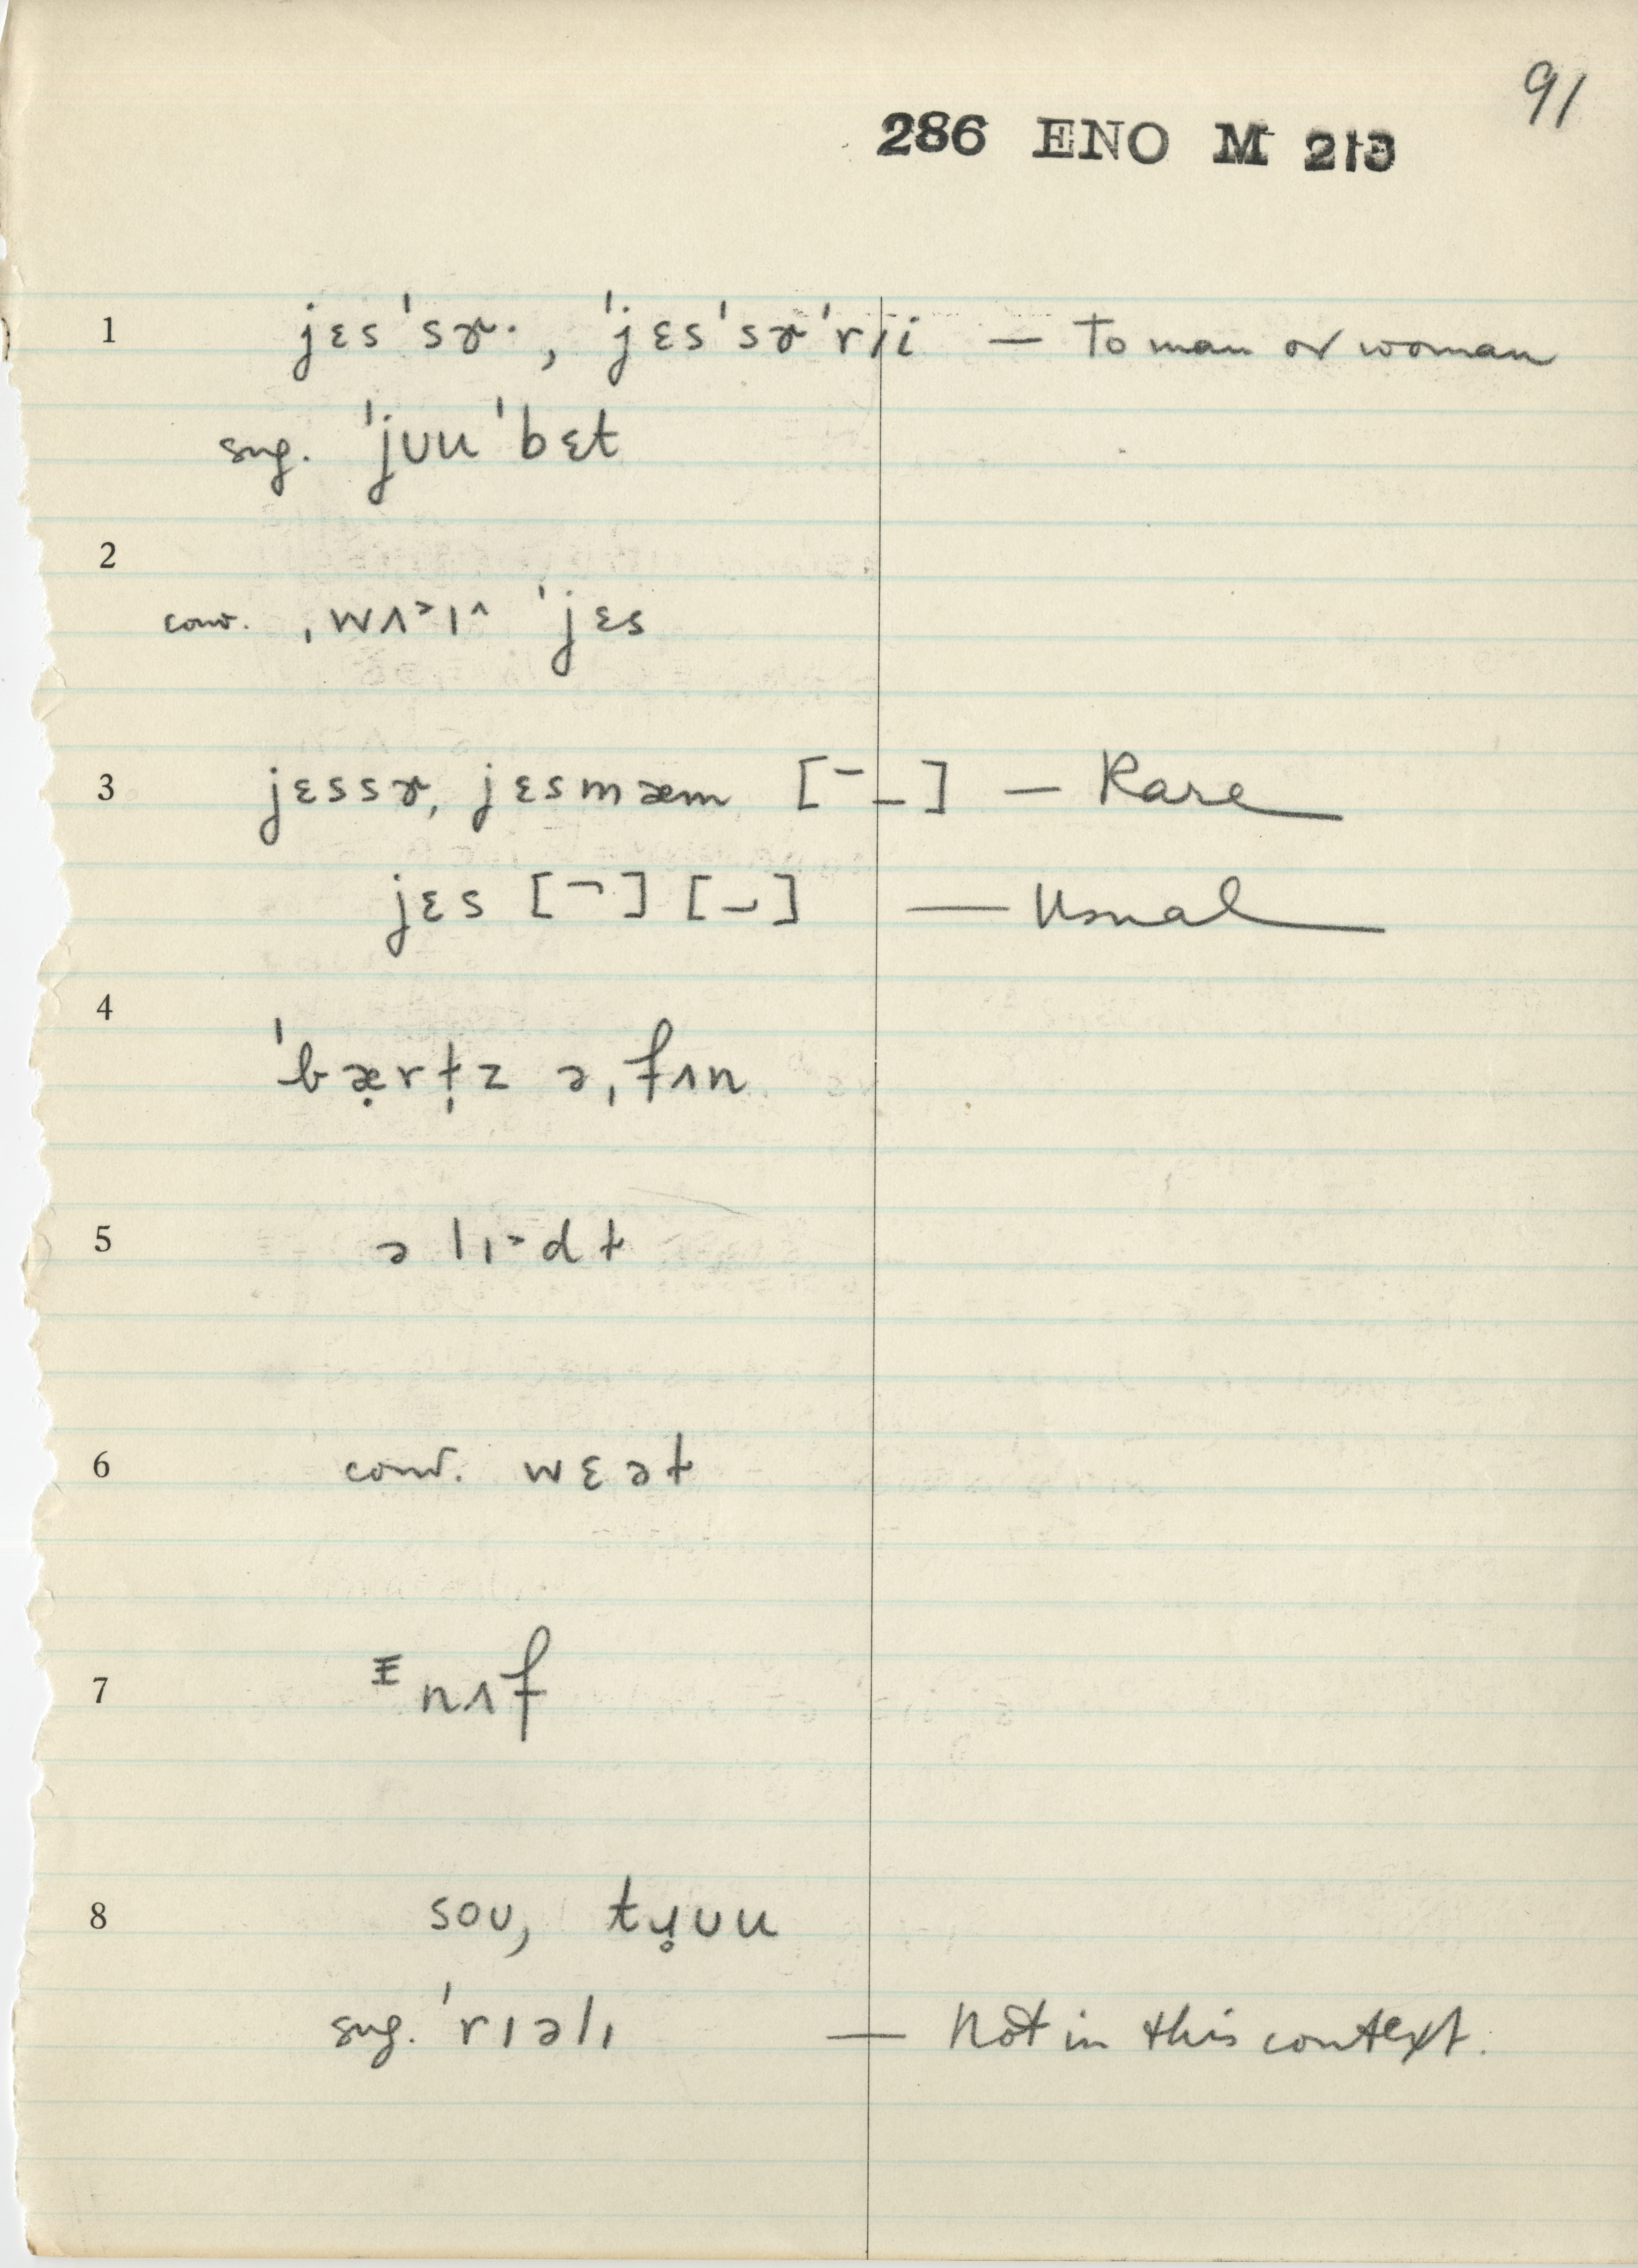 91
286 ENO M 213
1 jɛs'sɚ·, 'jɛs'sɚ'rɪi — To man or woman
sug. 'jʊu'bɛt
2
conv. ˌwʌ˃lˆ 'jɛs
3 jɛssɚ, jɛsmæm [¯_] — Rare
jɛs [¯] [_] — Usual
4
'bæ̣rṭz əˌfʌn
5 ə lɪ˃dt
6 conv. wɛət
7 ᵻnʌf
8 soʊ, tɥ̥ʊu
sug. 'rɪəlɪ — Not in this context.